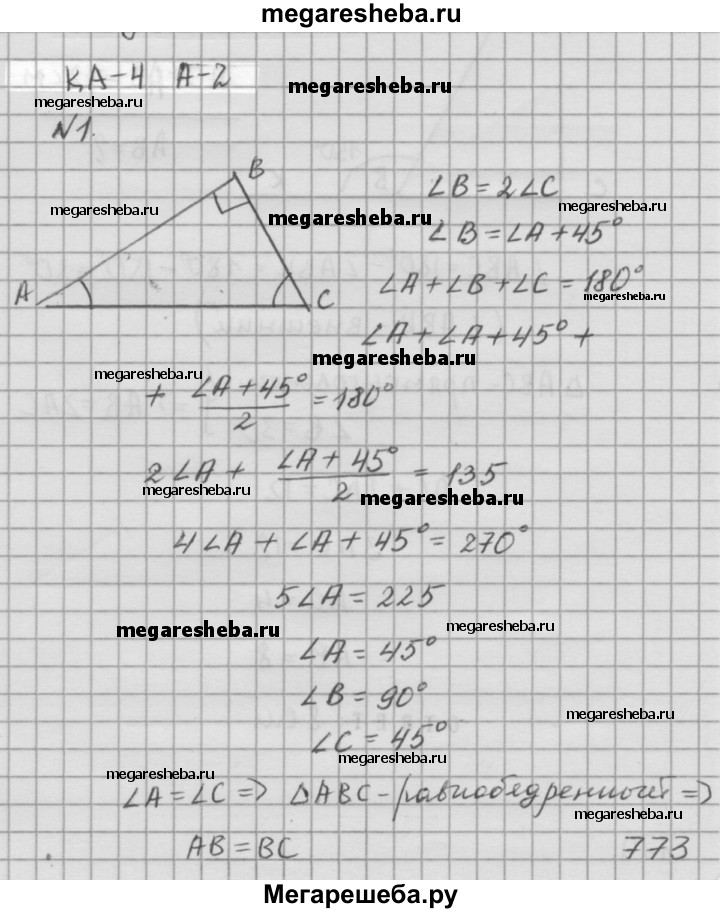 megaresheba.ru
КА-4 А-2
megaresheba.ru
megaresheba.ru
N1.
B
∠B = 2∠C
megaresheba.ru
megaresheba.ru
megaresheba.ru
∠B = ∠A + 45°
A
C
∠A + ∠B + ∠C = 180°
megaresheba.ru
∠A + ∠A + 45° +
megaresheba.ru
megaresheba.ru
+ (∠A + 45°)/2 = 180°
2∠A + (∠A + 45°)/2 = 135
megaresheba.ru
megaresheba.ru
4∠A + ∠A + 45° = 270°
5∠A = 225
megaresheba.ru
megaresheba.ru
∠A = 45°
∠B = 90°
megaresheba.ru
∠C = 45°
megaresheba.ru
megaresheba.ru
∠A = ∠C => ΔABC - равнобедренный =>
megaresheba.ru
AB = BC
773
Мегарешеба.ру